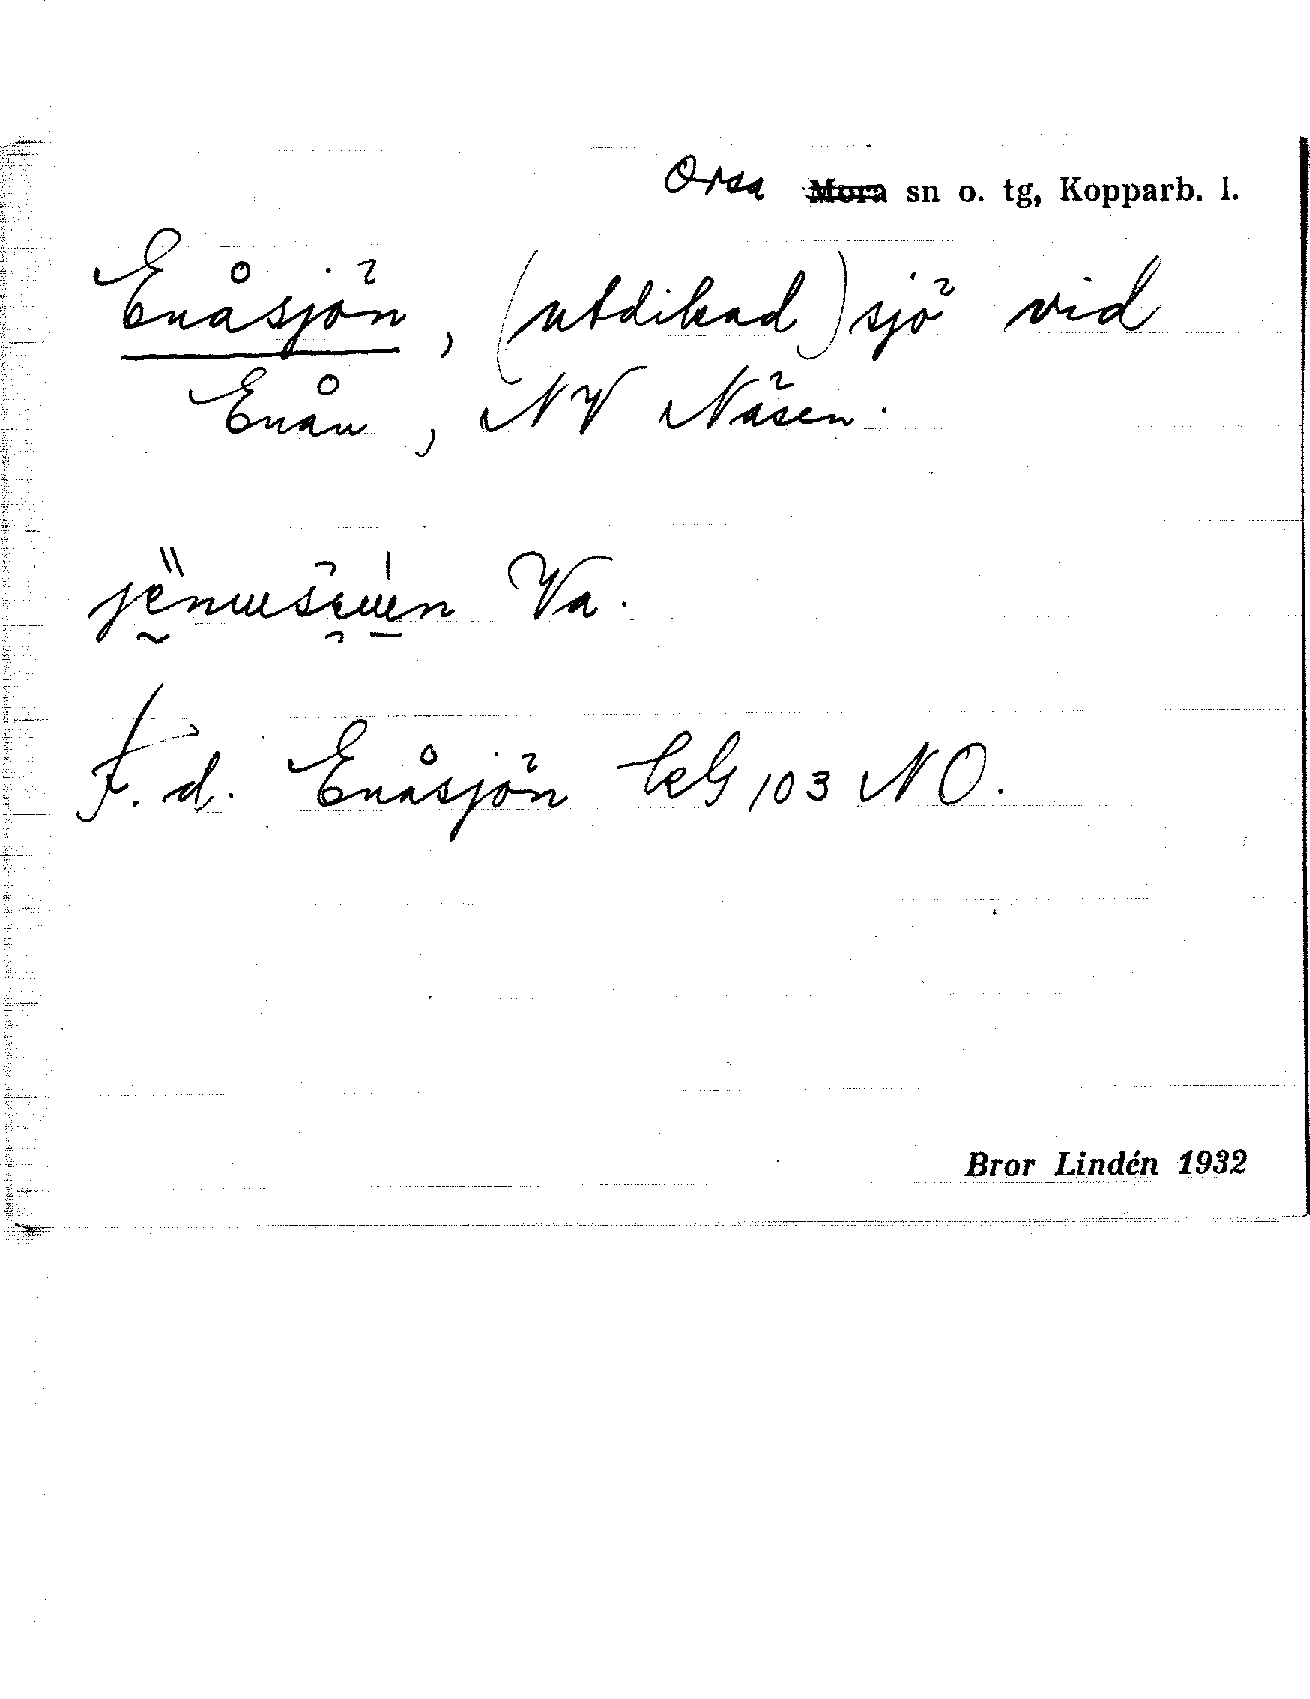 Orsa ~~Mora~~ sn o. tg, Kopparb. l.
Enåsjön, (utdikad) sjö vid
Enån, NV Näsen.
Va.
F. d. Enåsjön kG 103 NO.
Bror Lindén 1932